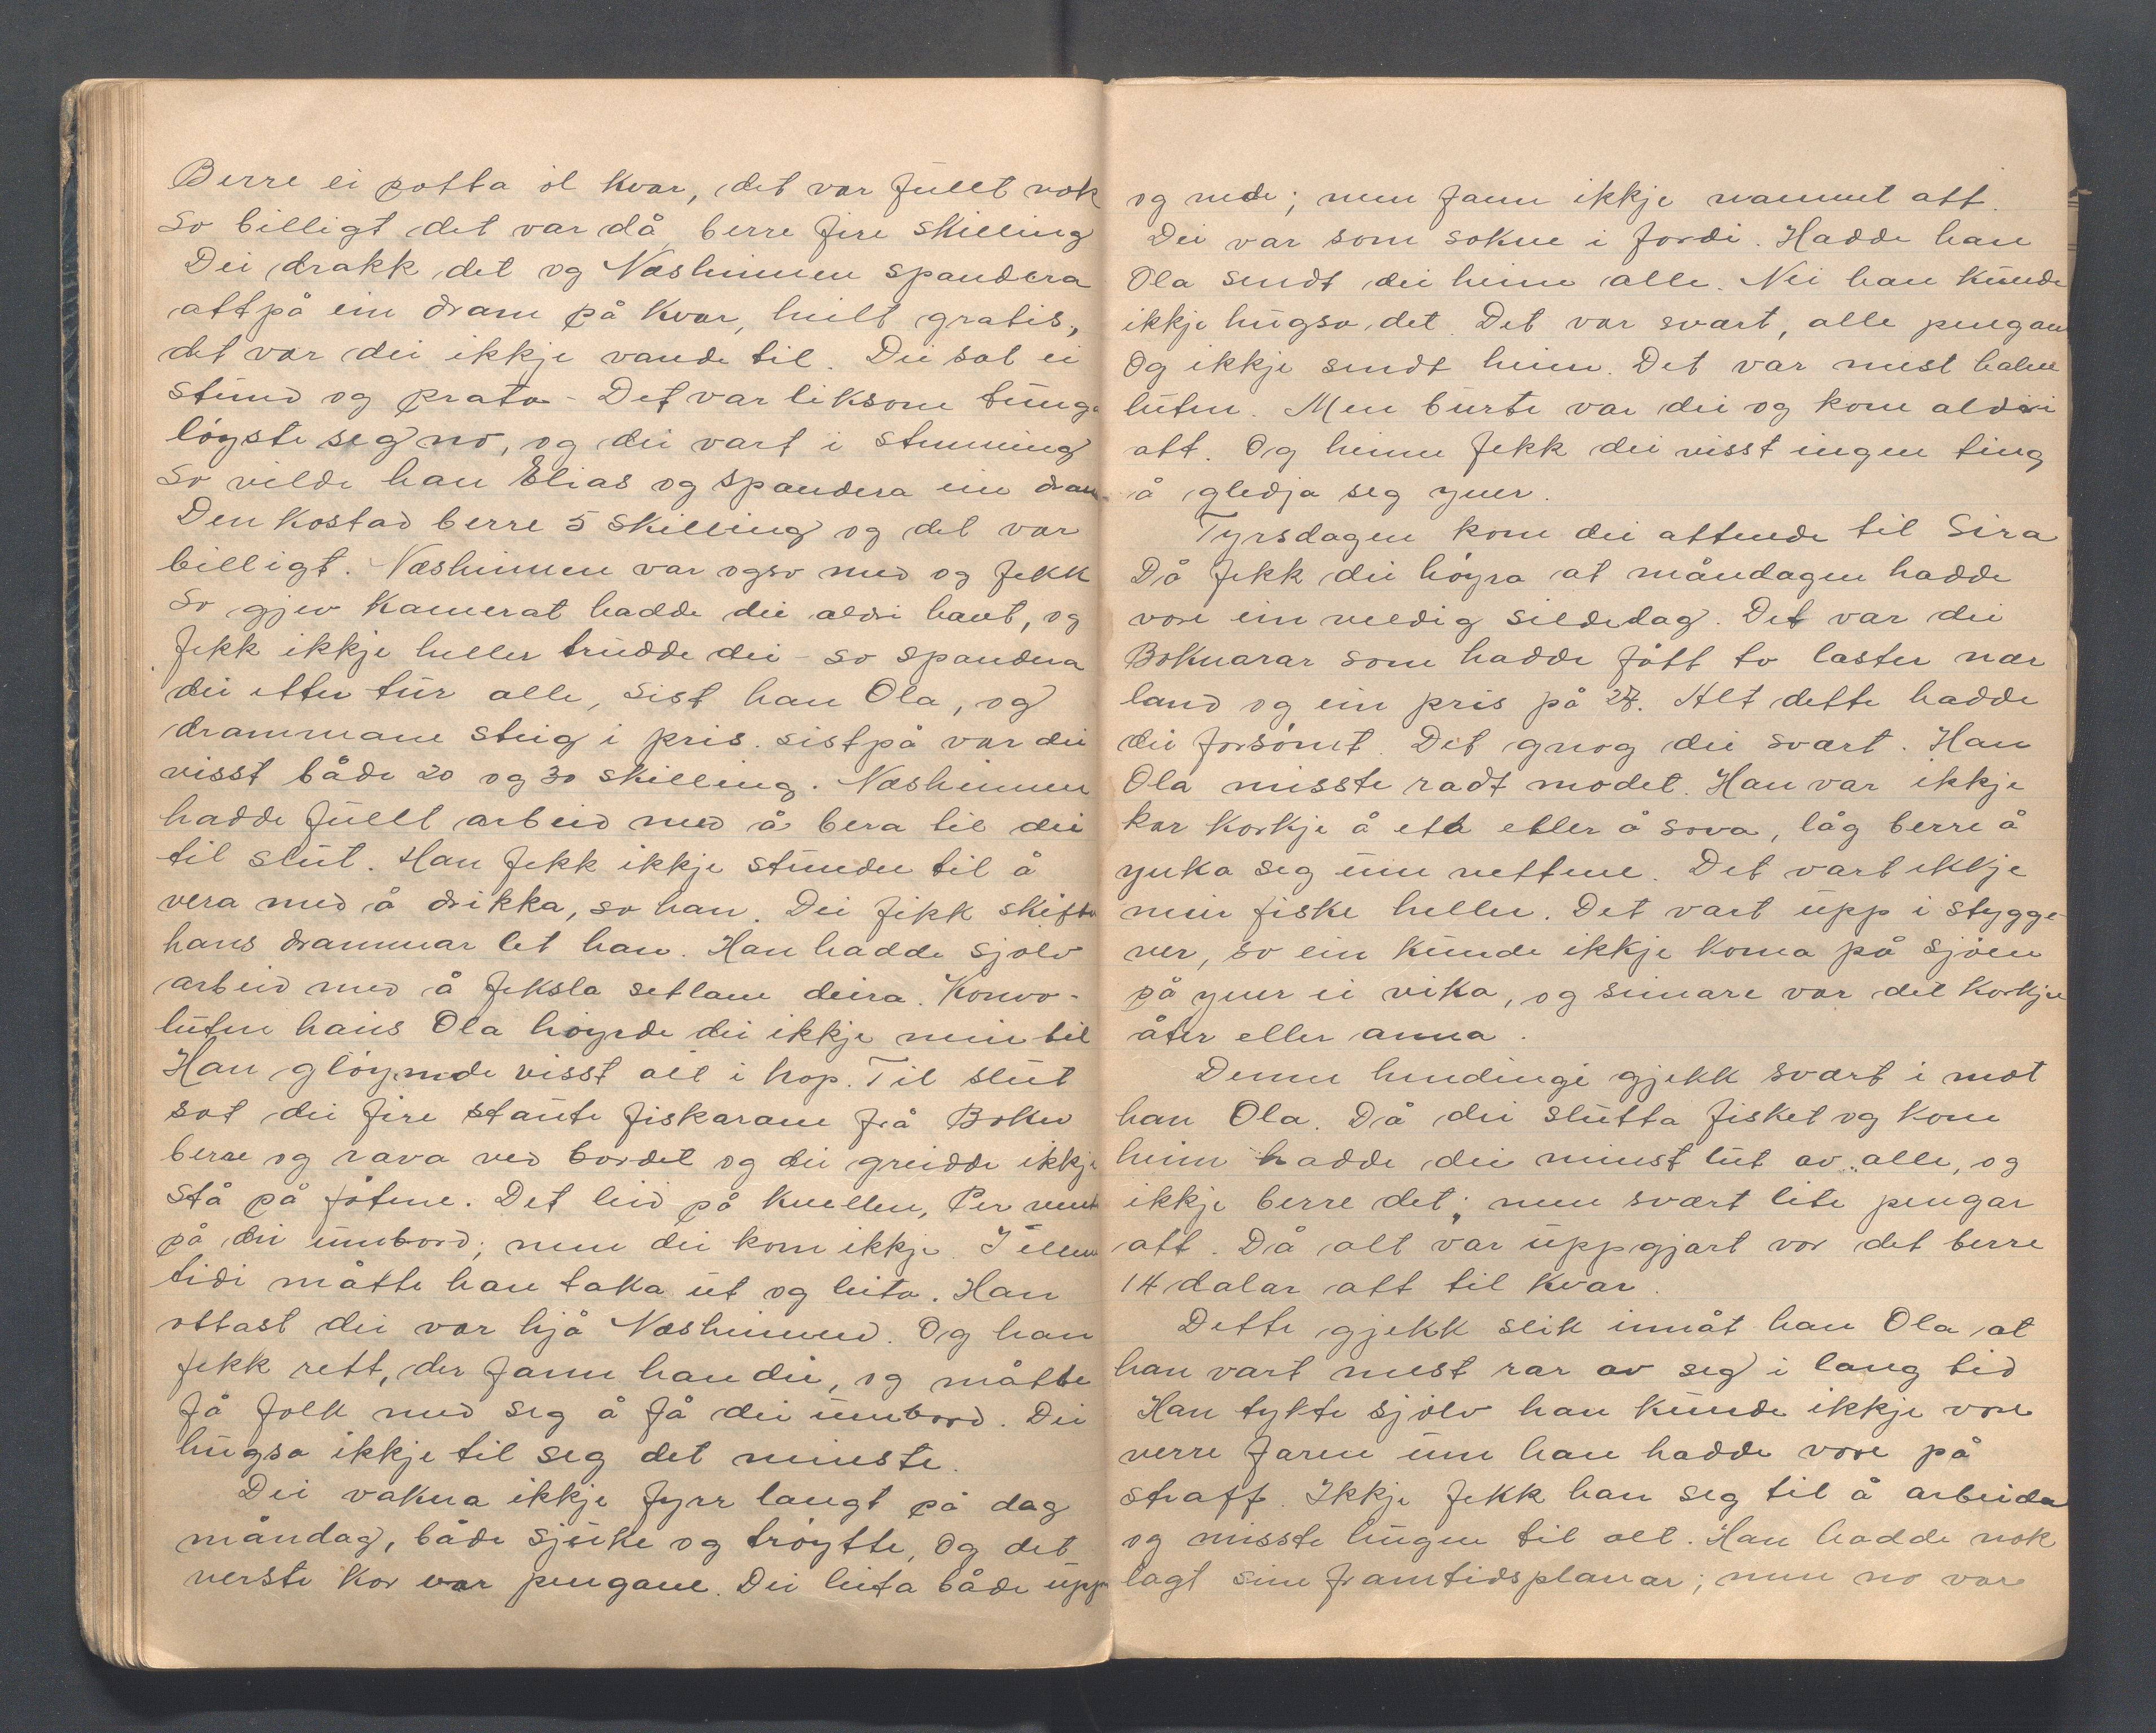 Berre ei potta øl kvar, det var fullt nok
So billigt det var då berre fire skilling
Dei drakk det og Næsheimen spandera
attpå ein dram på kvar, heilt gratis,
det var dei ikkje vande til. Dei sat ei
stund og prata - Det var liksom tunga
løyste seg no, og dei vart i stemning
So vilde han Elias og spandera ein dram
Den kostad berre 5 skilling og det var
billigt. Næsheimen var ogso med og fekk
So gjev kamerat hadde dei aldri havt, og
fekk ikkje heller trudde dei - so spandera
dei etter tur alle, sist han Ola, og
drammane steig i pris. sistpå var dei
visst både 20 og 30 skilling. Næsheimen
hadde fullt arbeid med å bera til dei
til slut. Han fekk ikkje stunder til å
vera med å drikka, sa han. Dei fikk skifta
hans drammar let han. Han hadde sjølv
arbeid med å feksla setlane deira. Konvo-
luten hans Ola høyrde dei ikkje meir til
Han gløymde visst alt i hop. Til slut
sat dei fire staute fiskarane frå Bokn
berre og rava ved bordet og dei greidde ikkje
stå på føtene. Det leid på kvellen, Per venta
på dei umbord; men dei kom ikkje. I ellevte
tidi måtte han taka ut og leita. Han
ottast dei var hjå Næsheimen. Og han
fekk rett, der fann han dei, og måtte
få folk med seg å få dei umbord. Dei
hugsa ikkje til seg det minste.
Dei vakna ikkje fyrr langt på dag
måndag, både sjuke og trøytte, og det
verste kor var pengane. Dei leita både upp
og nede; men fann ikkje nammet att.
Dei var som sokne i jordi. Hadde han
Ola sendt dei heime alle. Nei han kunde
ikkje hugsa det. Det var svært, alle pengane
Og ikkje sendt heim. Det var mest halve
luten. Men burte var dei og kom aldri
att. Og heime fekk dei visst ingen ting
å gledja seg yver.
Tyrsdagen kom dei attende til Sira
Då fekk dei høyra at måndagen hadde
vore ein veldig sildedag. Det var dei
Boknarar som hadde fått to laster nær
land og ein pris på 24. Alt dette hadde
dei forsømt. Det gnog dei svært. Han
Ola misste radt modet. Han var ikkje
kar korkje å eta eller å sova, låg berre å
ynka seg um nettene. Det vart ikkje
meir fiske heller. Det vart upp i stygge-
ver, so ein kunde ikkje koma på sjøen
på yver ei vika, og seinare var det korkje
åter eller anna.
Denne hendingi gjekk svært i mot
han Ola. Då dei slutta fisket og kom
heim hadde dei minst lut av alle, og
ikkje berre det; men svært lite pengar
att. Då alt var uppgjort var det berre
14 dalar att til kvar.
Dette gjekk slik innåt han Ola at
han vart mest rar av seg i lang tid
Han tykte sjølv han kunde ikkje vore
verre faren um han hadde vore på
straff. Ikkje fekk han seg til å arbeida
og misste hugen til alt. Han hadde nok
lagt sine framtidsplanar; men no var